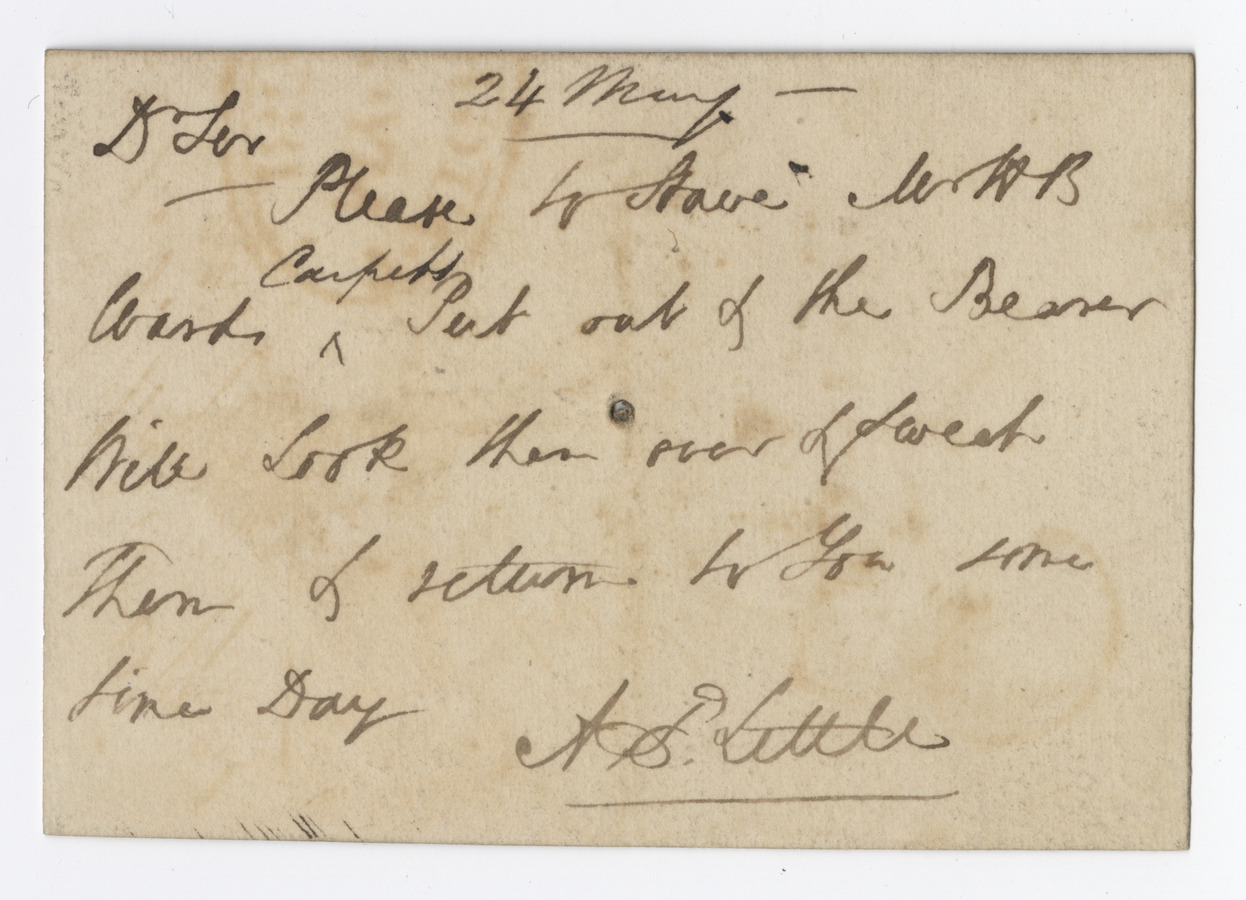 24 May —
Dr Sir
— Please to Have Mr H B
Carpetts
Wards ^ Put out & the Bearer
Will Look them over & Sweet
Them & return to You some
time Day
A. P. Little